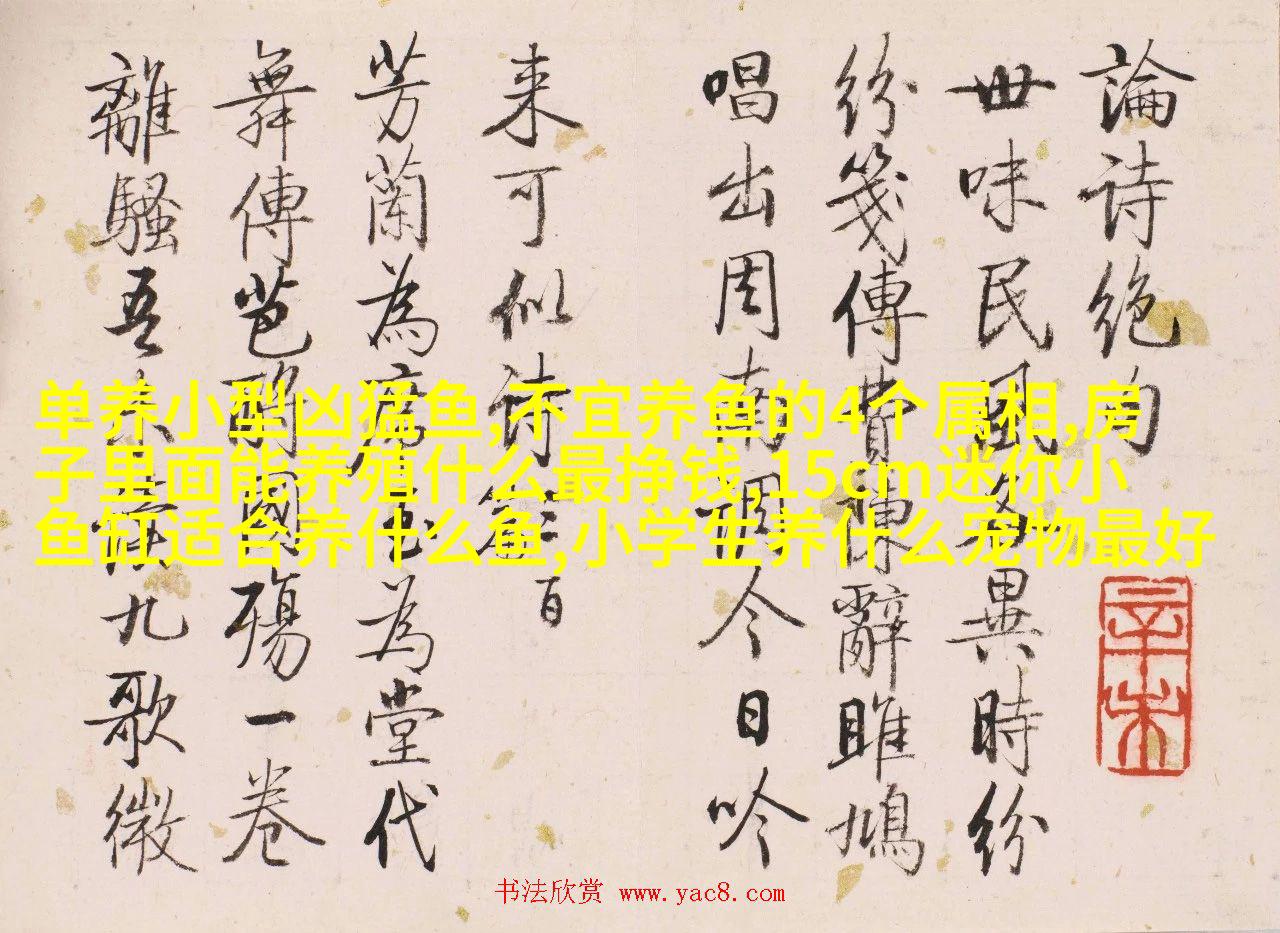 論诗绝句
世味民風多異時纷
纷笺傳費陳辭雎鳩
唱出周南調今日吟
来可似诗
百
芳蘭為席玉為堂代
舞傳芭酹國殤一卷
離騷吾未學九歌微
辛未
单养小型凶猛鱼,不宜养鱼的4个属相,房
子里面能养殖什么最挣钱,15cm迷你小
鱼缸适合养什么鱼,小学生养什么宠物最好
书法欣赏 www.yac8.com